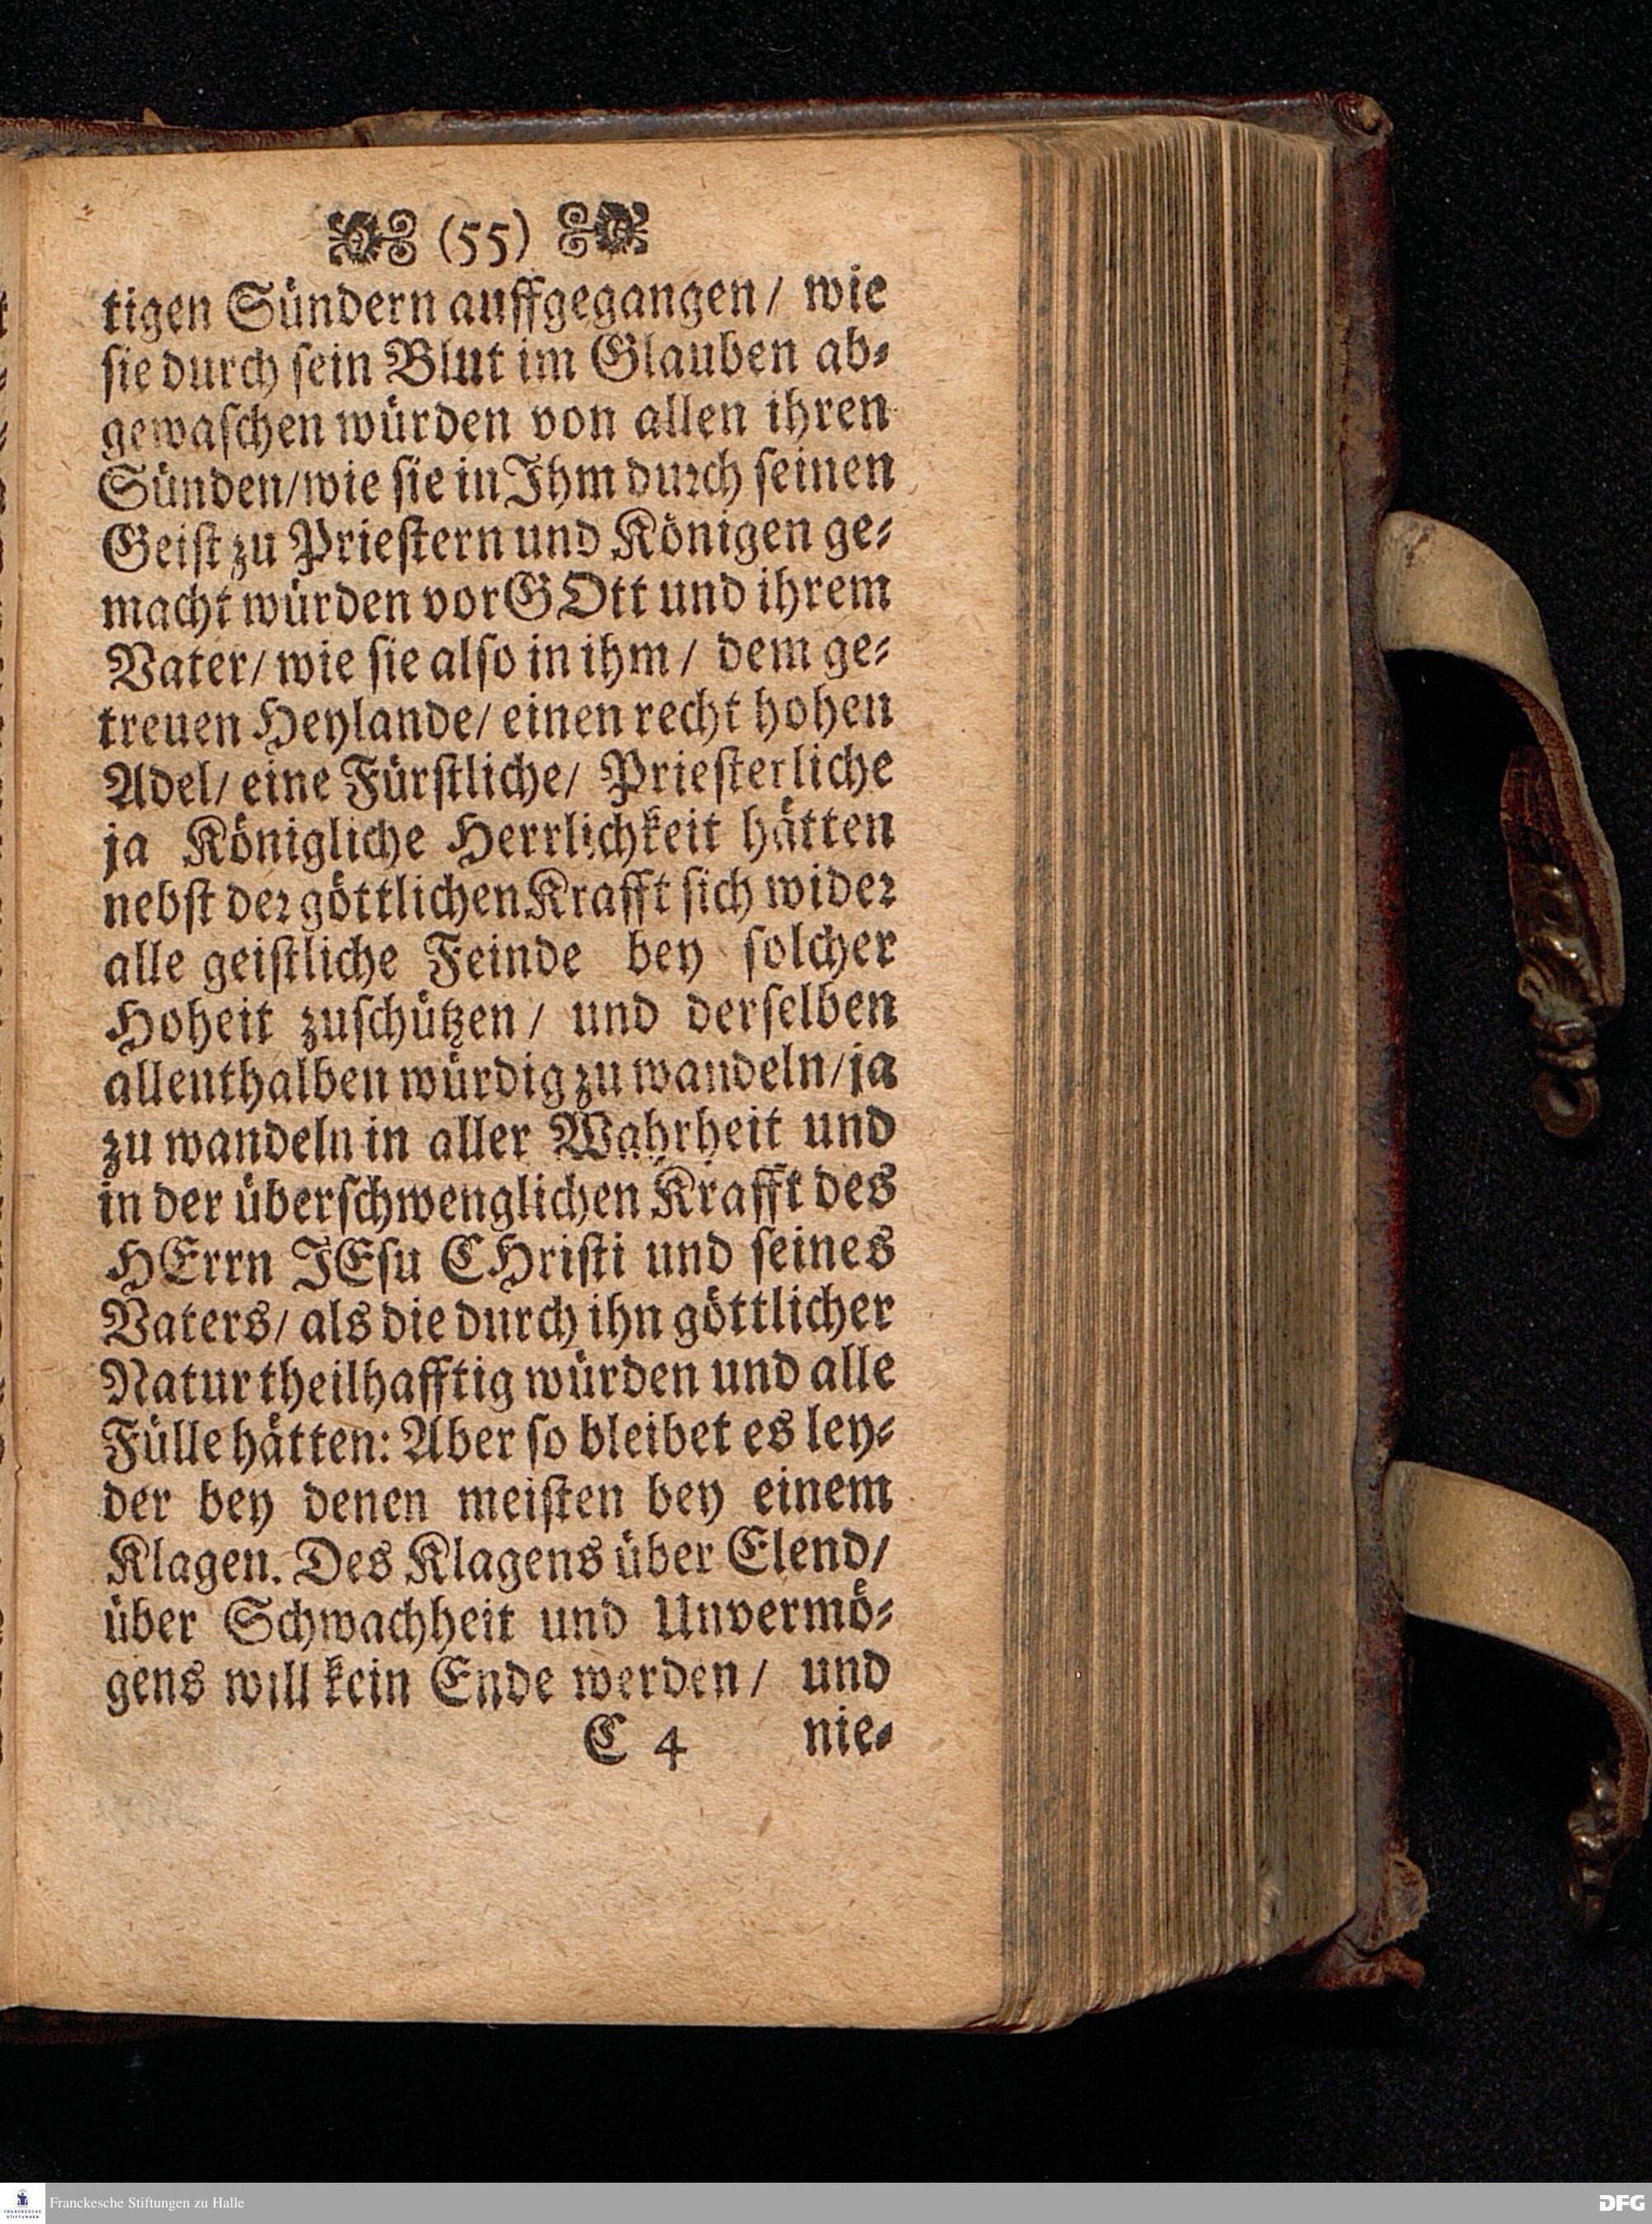 (55)
tigen Sündern auffgegangen/ wie
sie durch sein Blut im Glauben ab-
gewaschen würden von allen ihren
Sünden/wie sie in Ihm durch seinen
Geist zu Priestern und Königen ge-
macht würden vor GOtt und ihrem
Vater/ wie sie also in ihm/ dem ge-
treuen Heylande/ einen recht hohen
Adel/ eine Fürstliche/ Priesterliche
ja Königliche Herrlichkeit hätten
nebst der göttlichen Krafft sich wider
alle geistliche Feinde bey solcher
Hoheit zuschützen/ und derselben
allenthalben würdig zu wandeln/ja
zu wandeln in aller Wahrheit und
in der überschwenglichen Krafft des
HErrn JEsu CHristi und seines
Vaters/ als die durch ihn göttlicher
Natur theilhafftig würden und alle
Fülle hätten: Aber so bleibet es ley-
der bey denen meisten bey einem
Klagen. Des Klagens über Elend/
über Schwachheit und Unvermö-
gens will kein Ende werden/ und
C 4 nie-
Franckesche Stiftungen zu Halle
FRANCKESCHE STIFTUNGEN
DFG